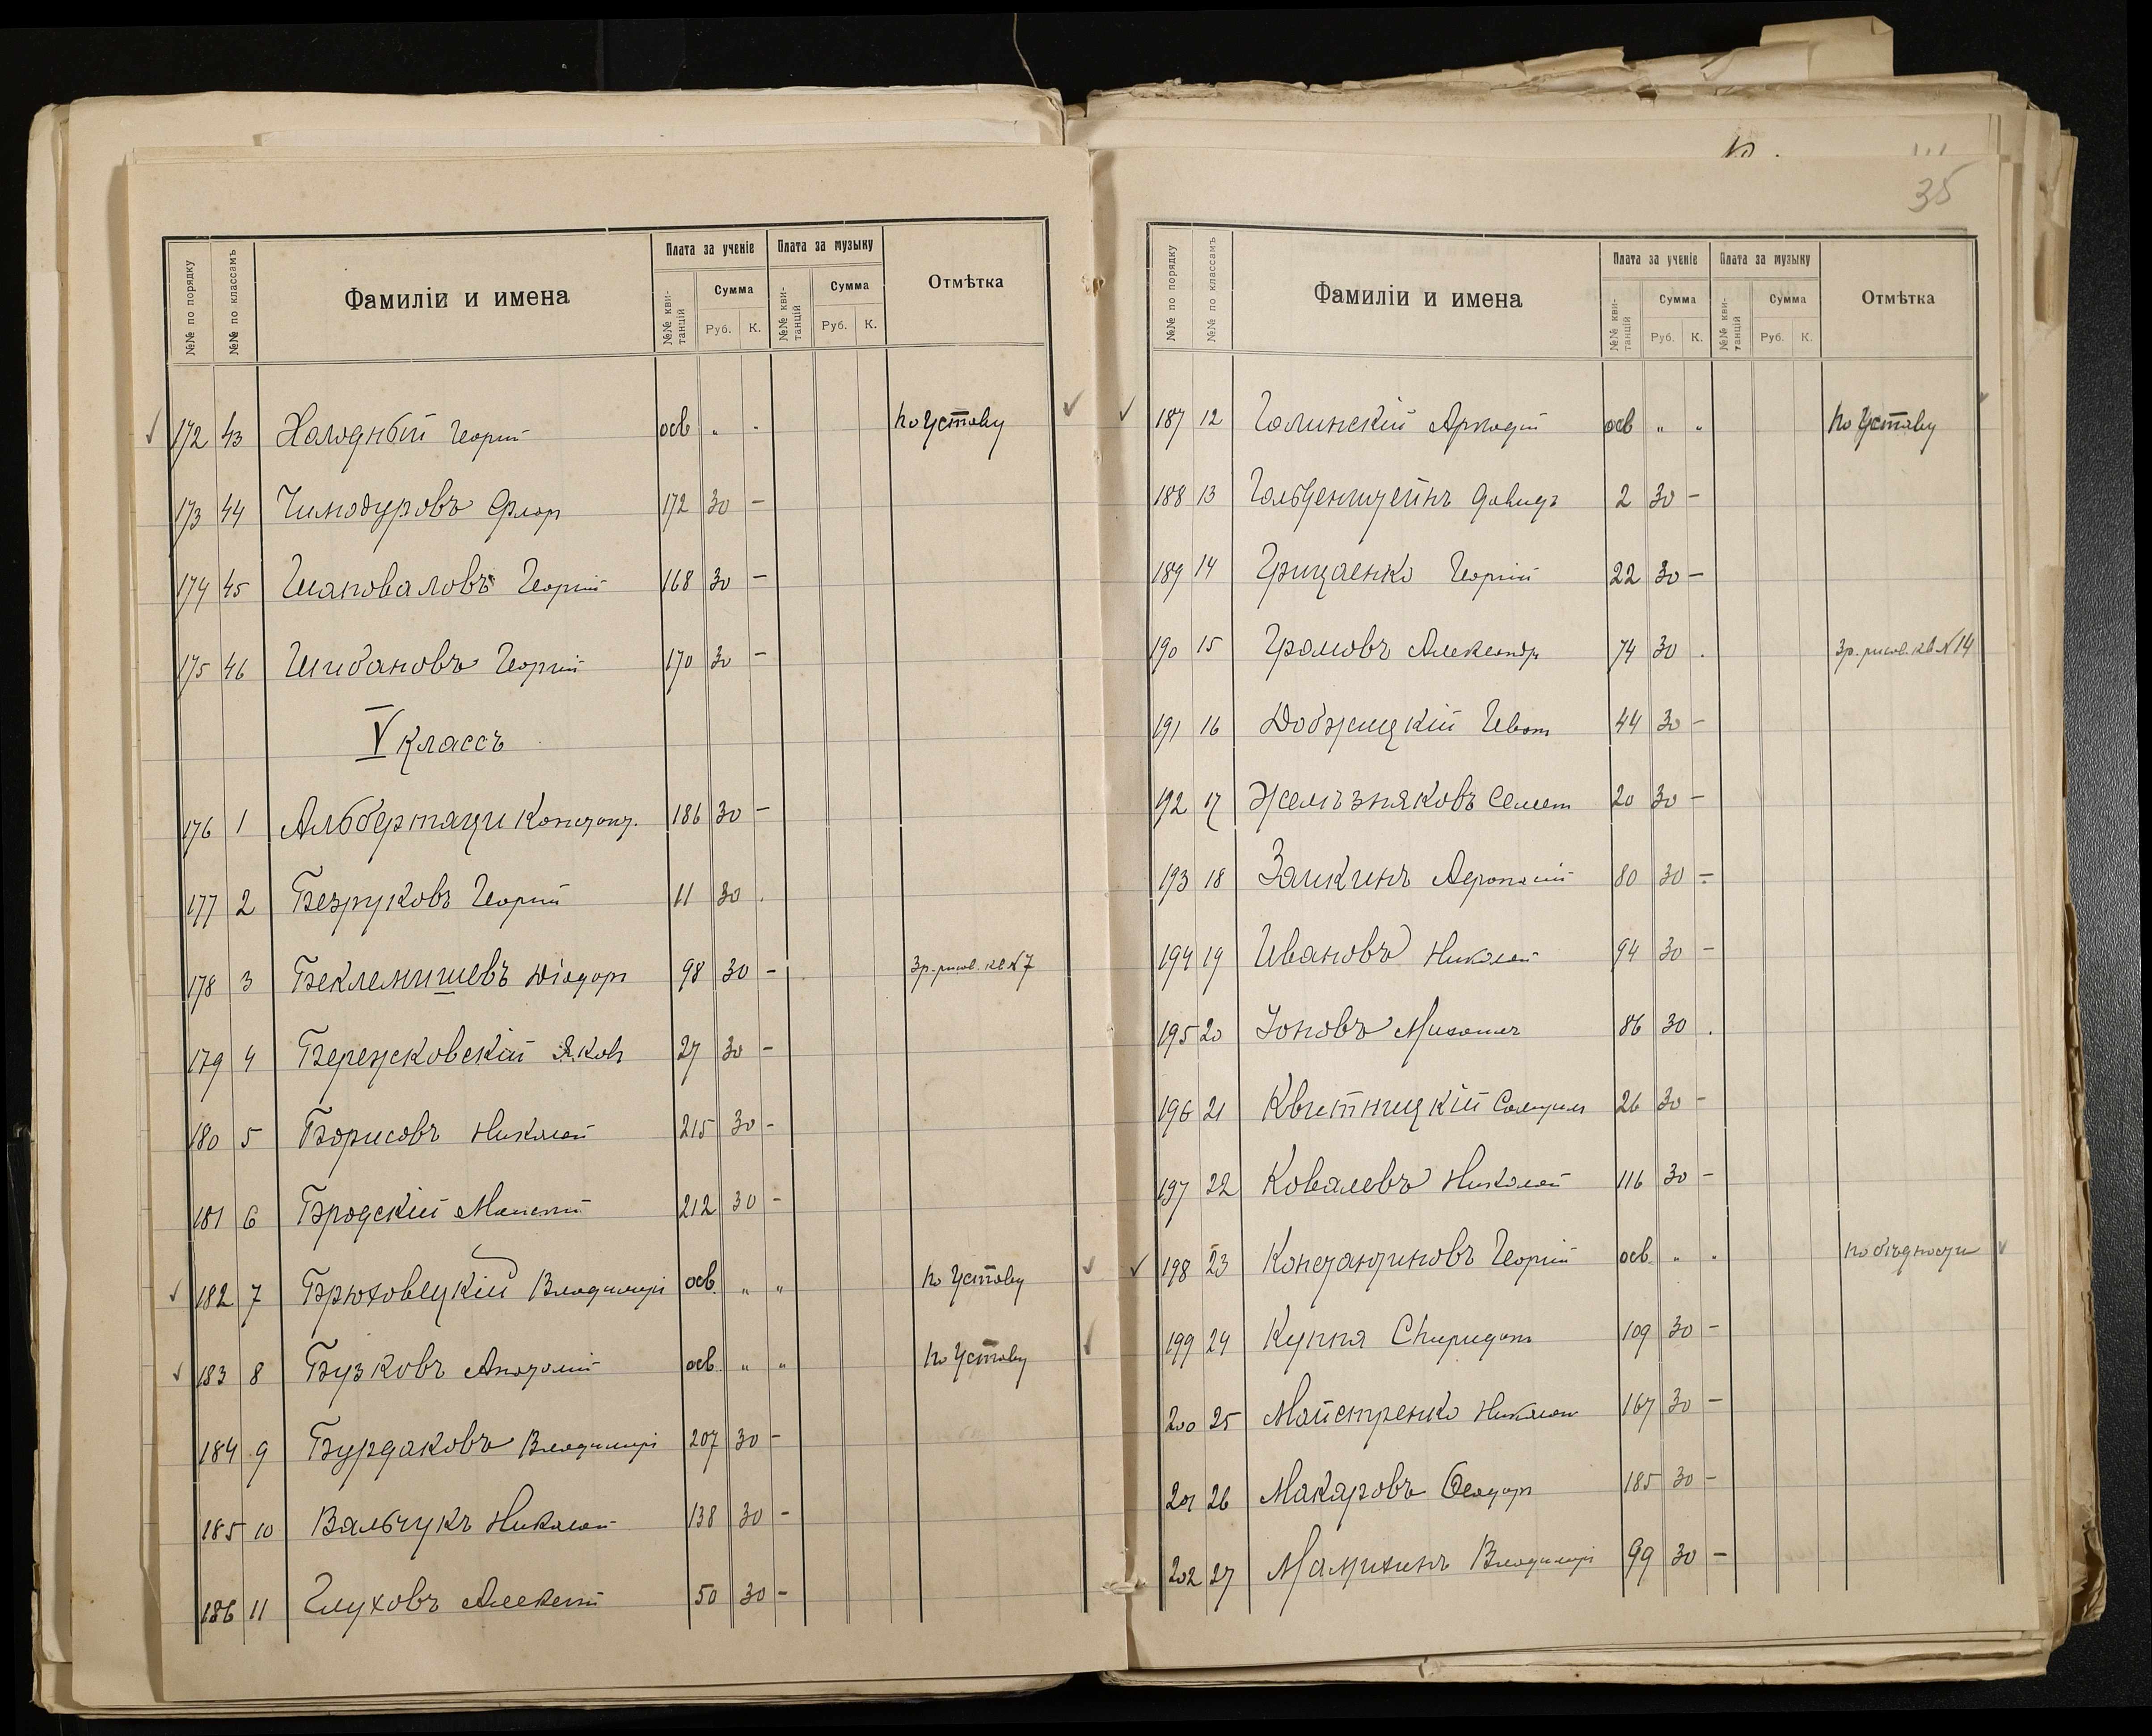 №№ по порядку №№ по классамъ Фамиліи и имена Плата за ученіе Плата за музыку Отмѣтка
№№ кви-танцій Сумма №№ кви-танцій Сумма
Руб. К. Руб. К.
172 43 Холодный Георгій осв " " По Уставу
173 44 Чинодуровъ Флоръ 172 30 —
174 45 Шаповаловъ Георгій 168 30 —
175 46 Шибановъ Георгій 170 30 —
V классъ
176 1 Альбертаци Констант. 186 30 —
177 2 Безруковъ Георгій 11 30 .
178 3 Беклемишевъ Діодоръ 98 30 — 3 р. рисов. кв № 7
179 4 Бережковскій Яковъ 27 30 —
180 5 Борисовъ Николай 215 30 —
181 6 Бродскій Моисей 212 30 —
182 7 Брюховецкій Владимиръ осв. " " По Уставу
183 8 Бузковъ Анатолій осв. " " По Уставу
184 9 Бурдаковъ Владимиръ 207 30 —
185 10 Вальчукъ Николай 138 30 —
186 11 Глуховъ Алексей 50 30 —
35
№№ по порядку №№ по классамъ Фамиліи и имена Плата за ученіе Плата за музыку Отмѣтка
№№ кви-танцій Сумма №№ кви-танцій Сумма
Руб. К. Руб. К.
187 12 Голинскій Аркадій осв " " По Уставу
188 13 Гольденштейнъ Давидъ 2 30 —
189 14 Грицаенко Георгій 22 30 —
190 15 Громовъ Александръ 74 30 . 3 р. рисов. кв № 14
191 16 Добжицкій Иванъ 44 30 —
192 17 Желѣзняковъ Семенъ 20 30 —
193 18 Заикинъ 80 30 —
194 19 Ивановъ Николай 94 30 —
195 20 Іоновъ Михаилъ 86 30 .
196 21 Квитницкій Самуилъ 26 30 —
197 22 Ковалевъ Николай 116 30 —
198 23 Константиновъ Георгій осв " " по бѣдности
199 24 Куппа Спиридонъ 109 30 —
200 25 Майстренко Николай 167 30 —
201 26 Макаровъ Ѳеодоръ 185 30 —
202 27 Мамихинъ Владимиръ 99 30 —